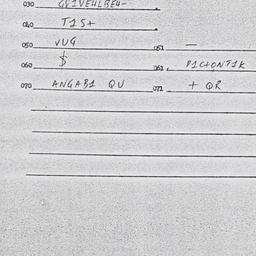 030
040 T1S+
050 VUG 051 —
060 $ 061
070 ANGAB1 QU 071 + QR